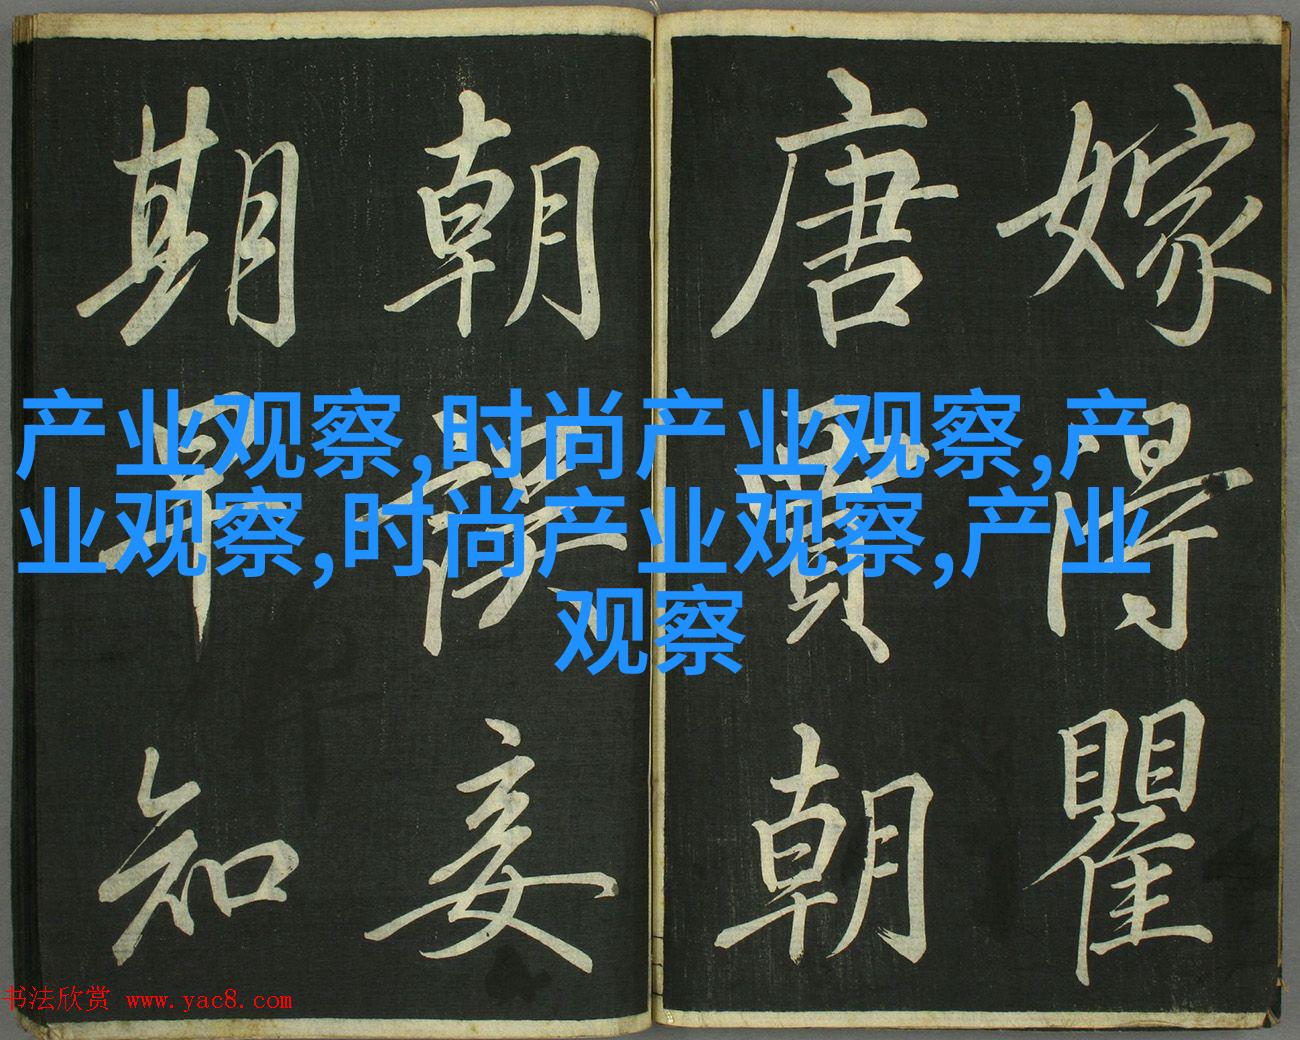 嫁得瞿
唐賈朝
朝誤妾
期早知
产业观察,时尚产业观察,产
业观察,时尚产业观察,产业
观察
书法欣赏 www.yac8.com